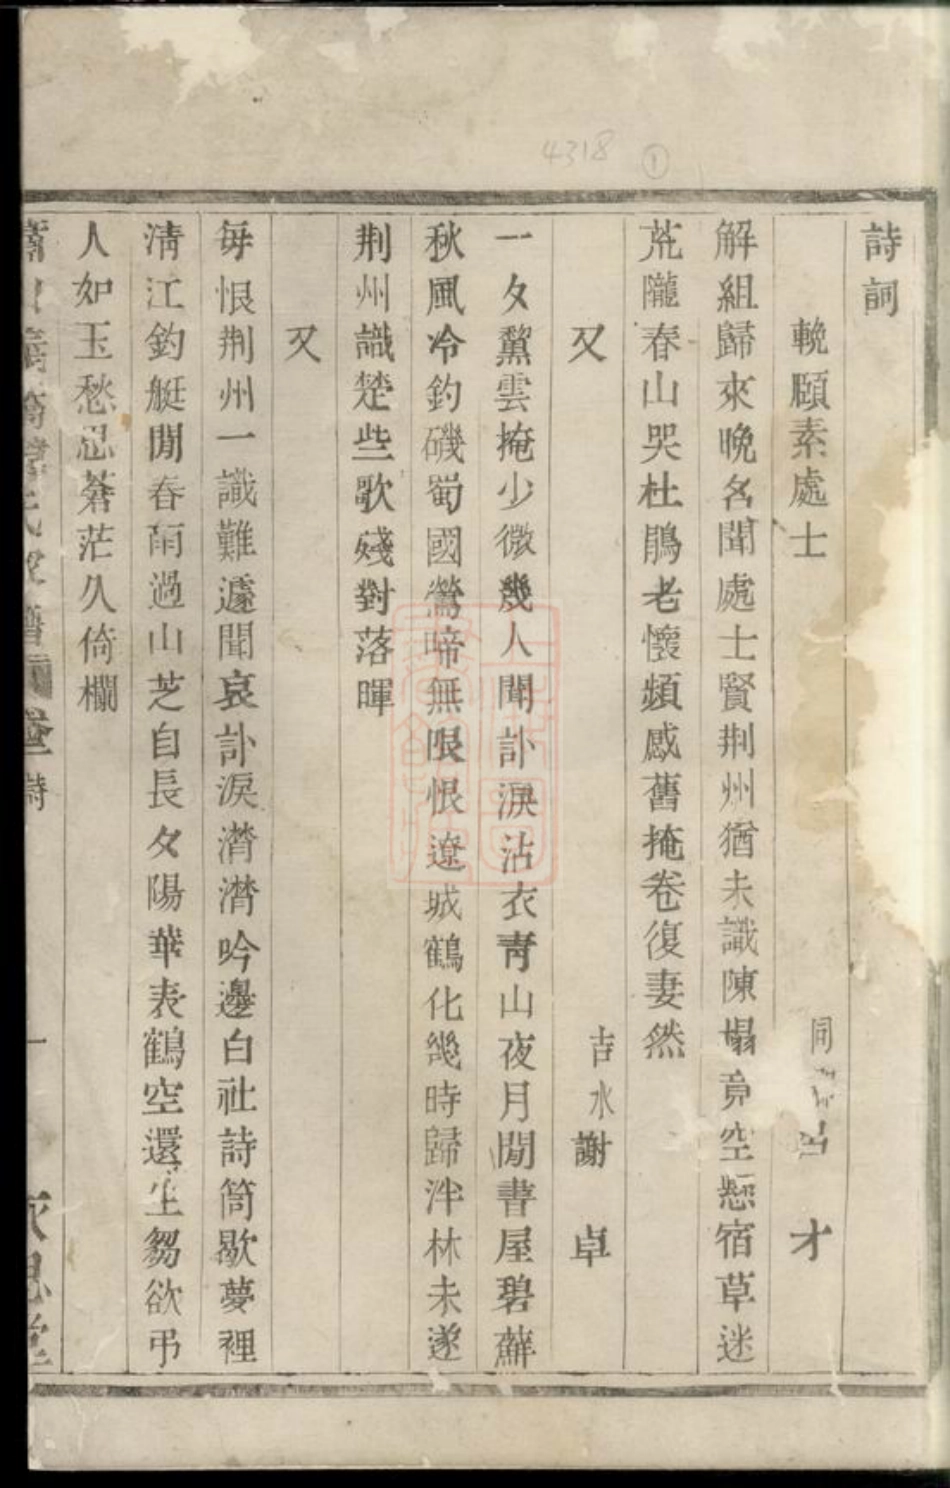 4318 ①
詩詞
輓頤素處士
同 才
解組歸來晚名聞處士賢荆州猶未識陳榻竟空懸宿草迷
荒隴春山哭杜鵑老懷頻感舊掩卷復妻然
又 吉水謝 卓
一夕黳雲掩少微幾人聞訃淚沾衣青山夜月閒書屋碧蘚
秋風冷釣磯蜀國鶯啼無限恨遼城鶴化幾時歸泮林未遂
荆州識楚些歌殘對落暉
又
每恨荆州一識難遽聞哀訃淚濟濟吟邊白社詩筒歇夢裡
清江釣艇閒春雨過山芝自長夕陽華表鶴空還生芻欲弔
人如玉愁忍蒼茫久倚欄
詩
一